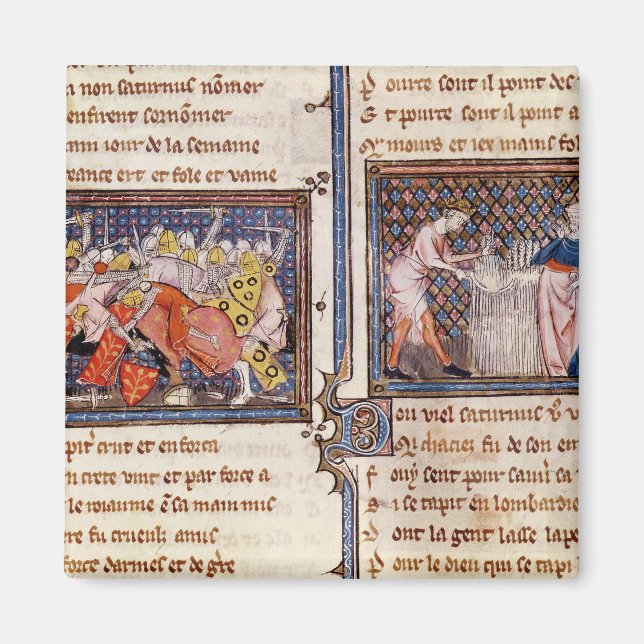 n non saturnus nõmer
enfirent sornõmer
mm iour de la semaine
eance ert et fole et vaine
pit' crut et enforca
n crete vint et par force a
le roiaume ẽ sa main mis
ere fu crueulx amis
force darmes et de gr̃e
P ourte sont il point des
E t pourte sont il point a
mours et les mains fol
D ou viel saturnus
Qui chacies fu de son em
f ouy sent pour sauu' sa
S i se tapit en lombardie
D ont la gent lasse lape
P our le dieu qui se tapi